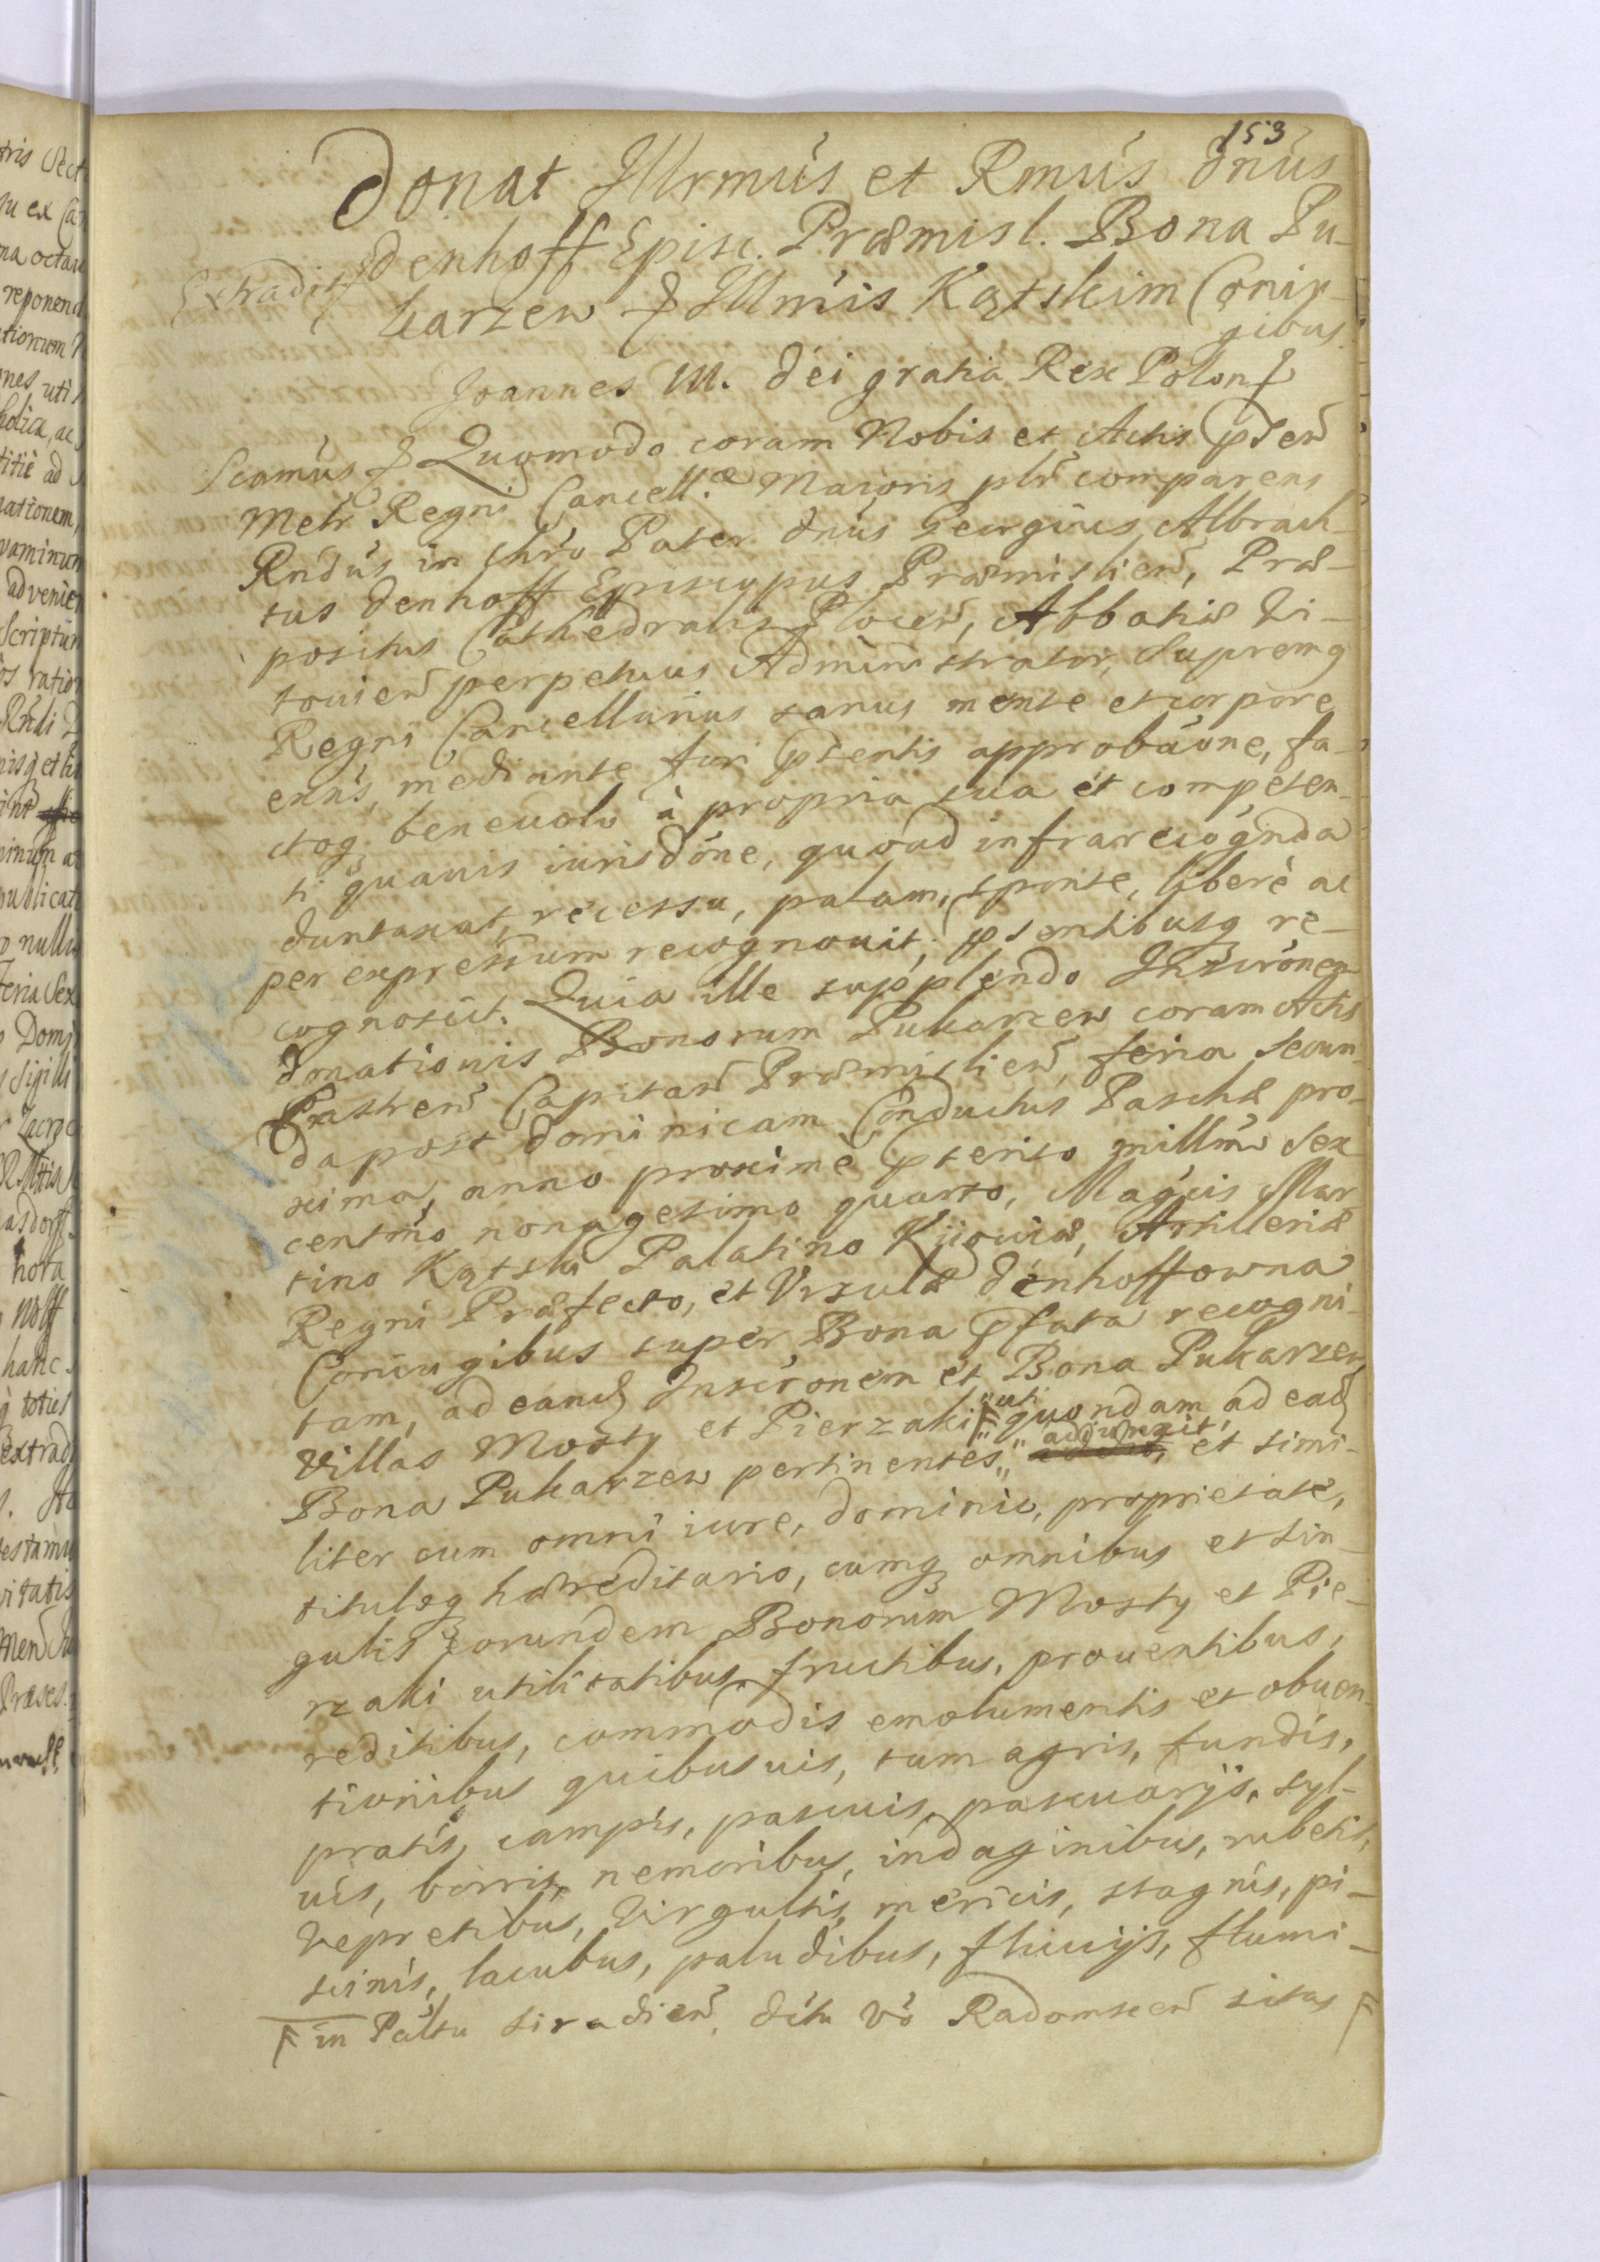 153
Donat Illrmus et Rmus Dnus
Denhoff Episc. Præmisl. Bona Pu-
Extradit
karzew Illmis Kątskim Coniu-
gibus
Joannes III. Dei gratia Rex Polon
Scamus Quomodo coram Nobis et Actis pnten
Metr Regni Cancellæ Maioris plr comparens
Rndus in Chro Pater Dnus Georgius Albrach-
tus Denhoff Episcopus Præmislien, Præ-
positus Cathedralis Plocen, Abbatiæ Vi-
towien perpetuus Administrator, Supremq
Regni Cancellarius sanus mente et corpore
exns, mediante sua pntentis approbaone, fa-
ctoq benevolo à propria sua et competen-
ti quavis iurisdone, quoad infrarecognda
duntaxat, recessu, palam, sponte, liberè ac
per expressum recognovit, pntentibusq re-
cognoscit. Quia ille supplendo Inscronem
Donationis Bonorum Pukarzew coram Actis
Castren Capitan Præmislien, feria secun-
da post Dominicam Conductus Paschæ pro-
xima, anno proximè pterito millmo sex
centmo nonagesimo quarto, Magcis Mar
tino Kątski Palatino Kijoviæ, Artilleriæ
Regni Præfecto, et Vrsulæ Denhoffowna
Coniugibus super Bona pfata recogni-
tam, ad eand Inscronem et Bona Pukarzew
Villas Mosty et Pierzaki uti quondam ad ead
Bona Pukarzew pertinentes, adiunxit, et simi-
liter cum omni iure, dominio, proprietate,
tituloq hæreditario, cumq omnibus et sin-
gulis eorundem Bonorum Mosty et Pie-
rzaki utilitatibus, fructibus, proventibus,
reditibus, commodis emolumentis et obven-
tionibus quibusvis, tum agris, fundis,
pratis, campis, pascuis, pascuarijs, syl-
vis, borris, nemoribus, indaginibus, rubetis,
vepretibus, virgultis, mericis, stagnis, pi-
scinis, lacubus, paludibus, fluvijs, flumi-
in Paltu Siradien, Dctu Vo Radomscen sitas